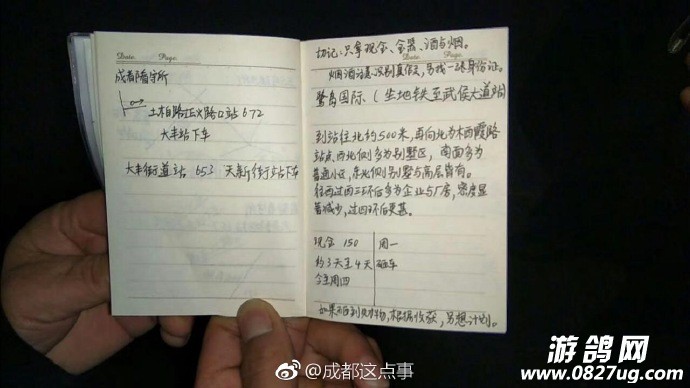 Date. Page.
成都看守所
土柏路正义路口站 672
大丰站下车
大丰街道站 653 天新街站下车
切记:只拿现金、金器、酒与烟。
Date. Page.
烟酒注意识别真假,另找一张身份证。
鹭岛国际、(坐地铁至武侯大道站)
到站往北约500米,再向北为木西霞路
站点,西北侧多为别墅区,南面多为
普通小区,东北侧别墅与高层皆有。
往西过四三环后多为企业与厂房,密度显
著减少,过四环后更甚。
现金 150 周一
约3天至4天 砸车
今至周四
如果 到财物,根据收获,另想计划。
@成都这点事
游鸽网
www.0827ug.com